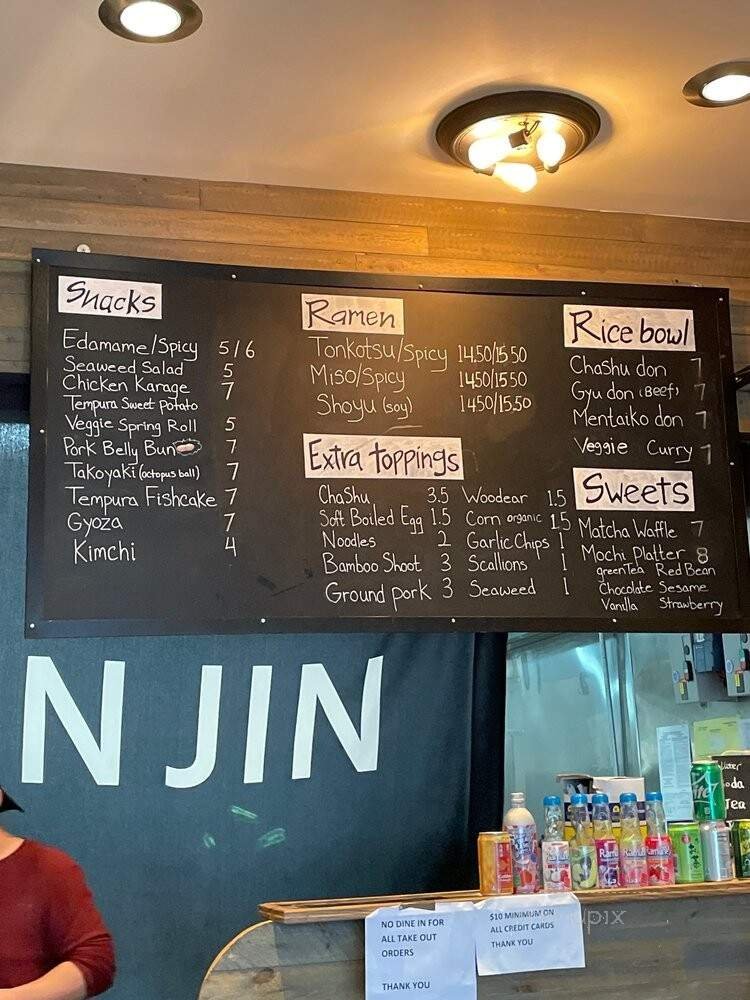 Snacks
Edamame/Spicy 5/6
Seaweed Salad 5
Chicken Karage 7
Tempura Sweet Potato
Veggie Spring Roll 5
Pork Belly Bun 7
Takoyaki (octopus ball) 7
Tempura Fishcake 7
Gyoza 7
Kimchi 4
Ramen
Tonkotsu/Spicy 14.50/15.50
Miso/Spicy 14.50/15.50
Shoyu (soy) 14.50/15.50
Extra toppings
ChaShu 3.5 Woodear 1.5
Soft Boiled Egg 1.5 Corn organic 1.5
Noodles 2 Garlic Chips 1
Bamboo Shoot 3 Scallions 1
Ground pork 3 Seaweed 1
Rice bowl
Chashu don 7
Gyu don (Beef) 7
Mentaiko don 7
Veggie Curry 7
Sweets
Matcha Waffle 7
Mochi Platter 8
green Tea Red Bean
Chocolate Sesame
Vanilla Strawberry
N JIN
Water
Soda
Tea
NO DINE IN FOR
ALL TAKE OUT
ORDERS
THANK YOU
$10 MINIMUM ON
ALL CREDIT CARDS
THANK YOU